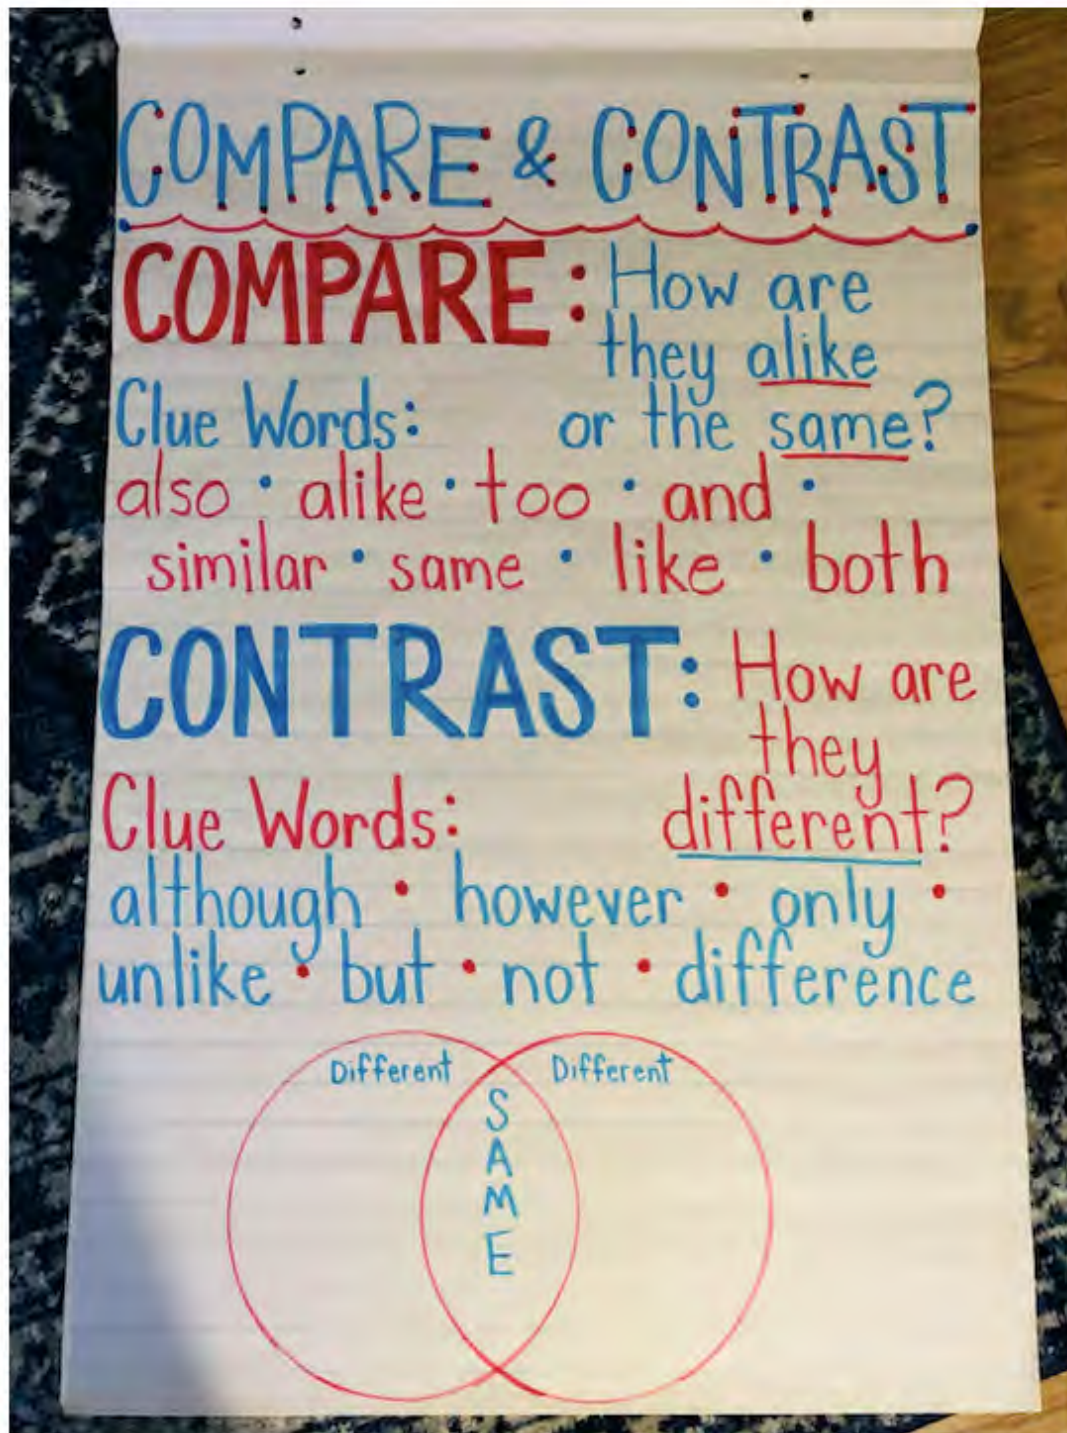 COMPARE & CONTRAST
COMPARE: How are
they alike
or the same?
Clue Words:
also • alike • too • and •
similar • same • like • both
CONTRAST: How are
they
different?
Clue Words:
although • however • only •
unlike • but • not • difference
Different
Different
SAME